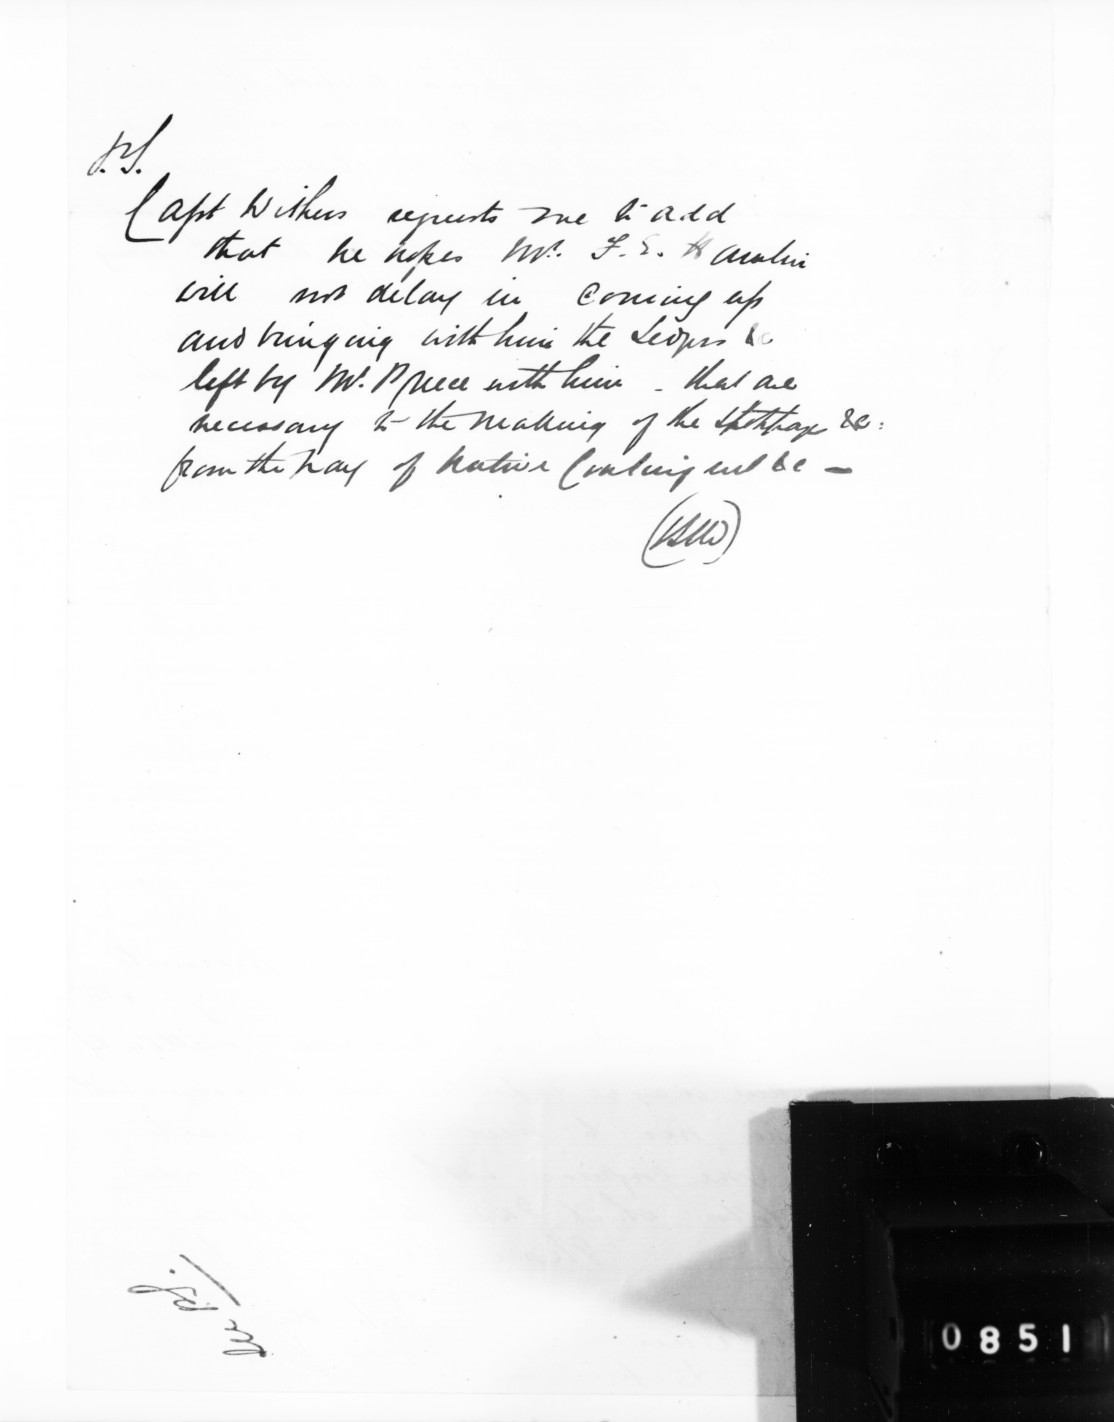 P.S.
Capt Withers requests me to add
that he hopes Mr. F. E. Hamlin
will not delay in coming up
and bringing with him the &c
left by Mr. Preece with him - that are
necessary to the making of the stoppage &c:
from the pay of Native Contingent &c -
0851